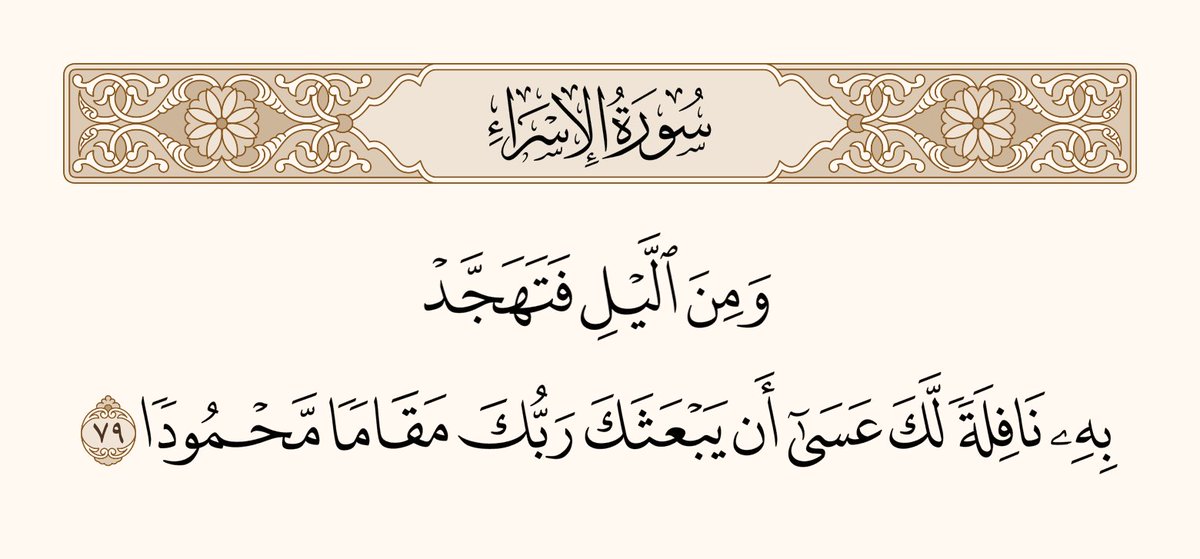 سُورَةُ الإِسْرَاءِ
وَمِنَ ٱلَّيۡلِ فَتَهَجَّدۡ
بِهِۦ نَافِلَةٗ لَّكَ عَسَىٰٓ أَن يَبۡعَثَكَ رَبُّكَ مَقَامٗا مَّحۡمُودٗا ٧٩